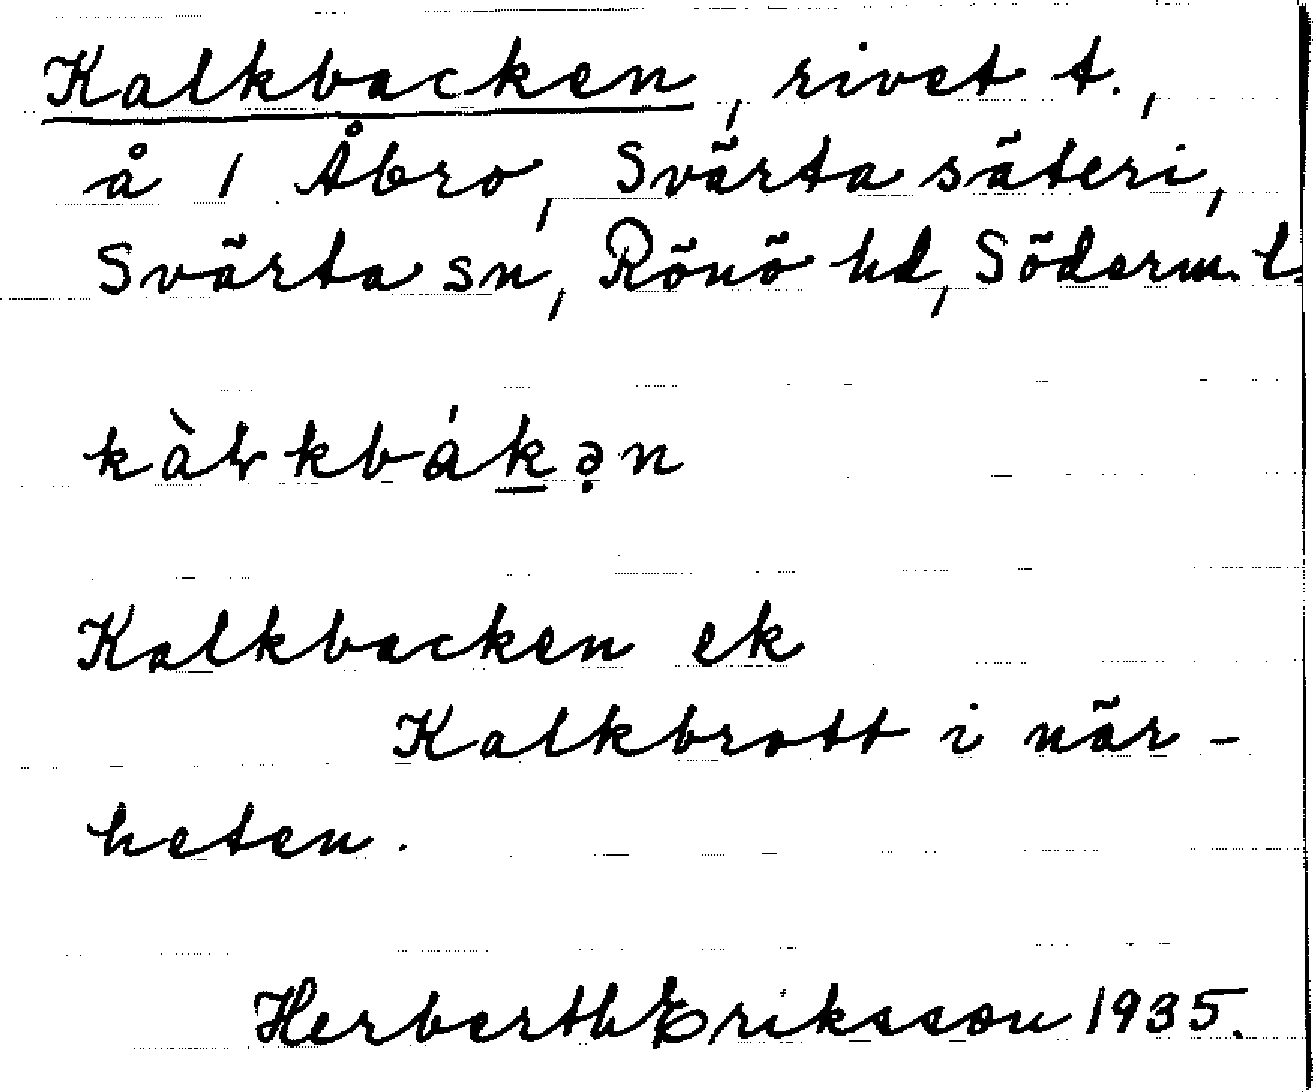 Kalkbacken, rivet t.,
å 1 Åbro, Svärta säteri,
Svärta sn, Rönö hd, Söderm. l.
Kalkbacken ek
Kalkbrott i när-
heten.
Herberth Eriksson 1935.